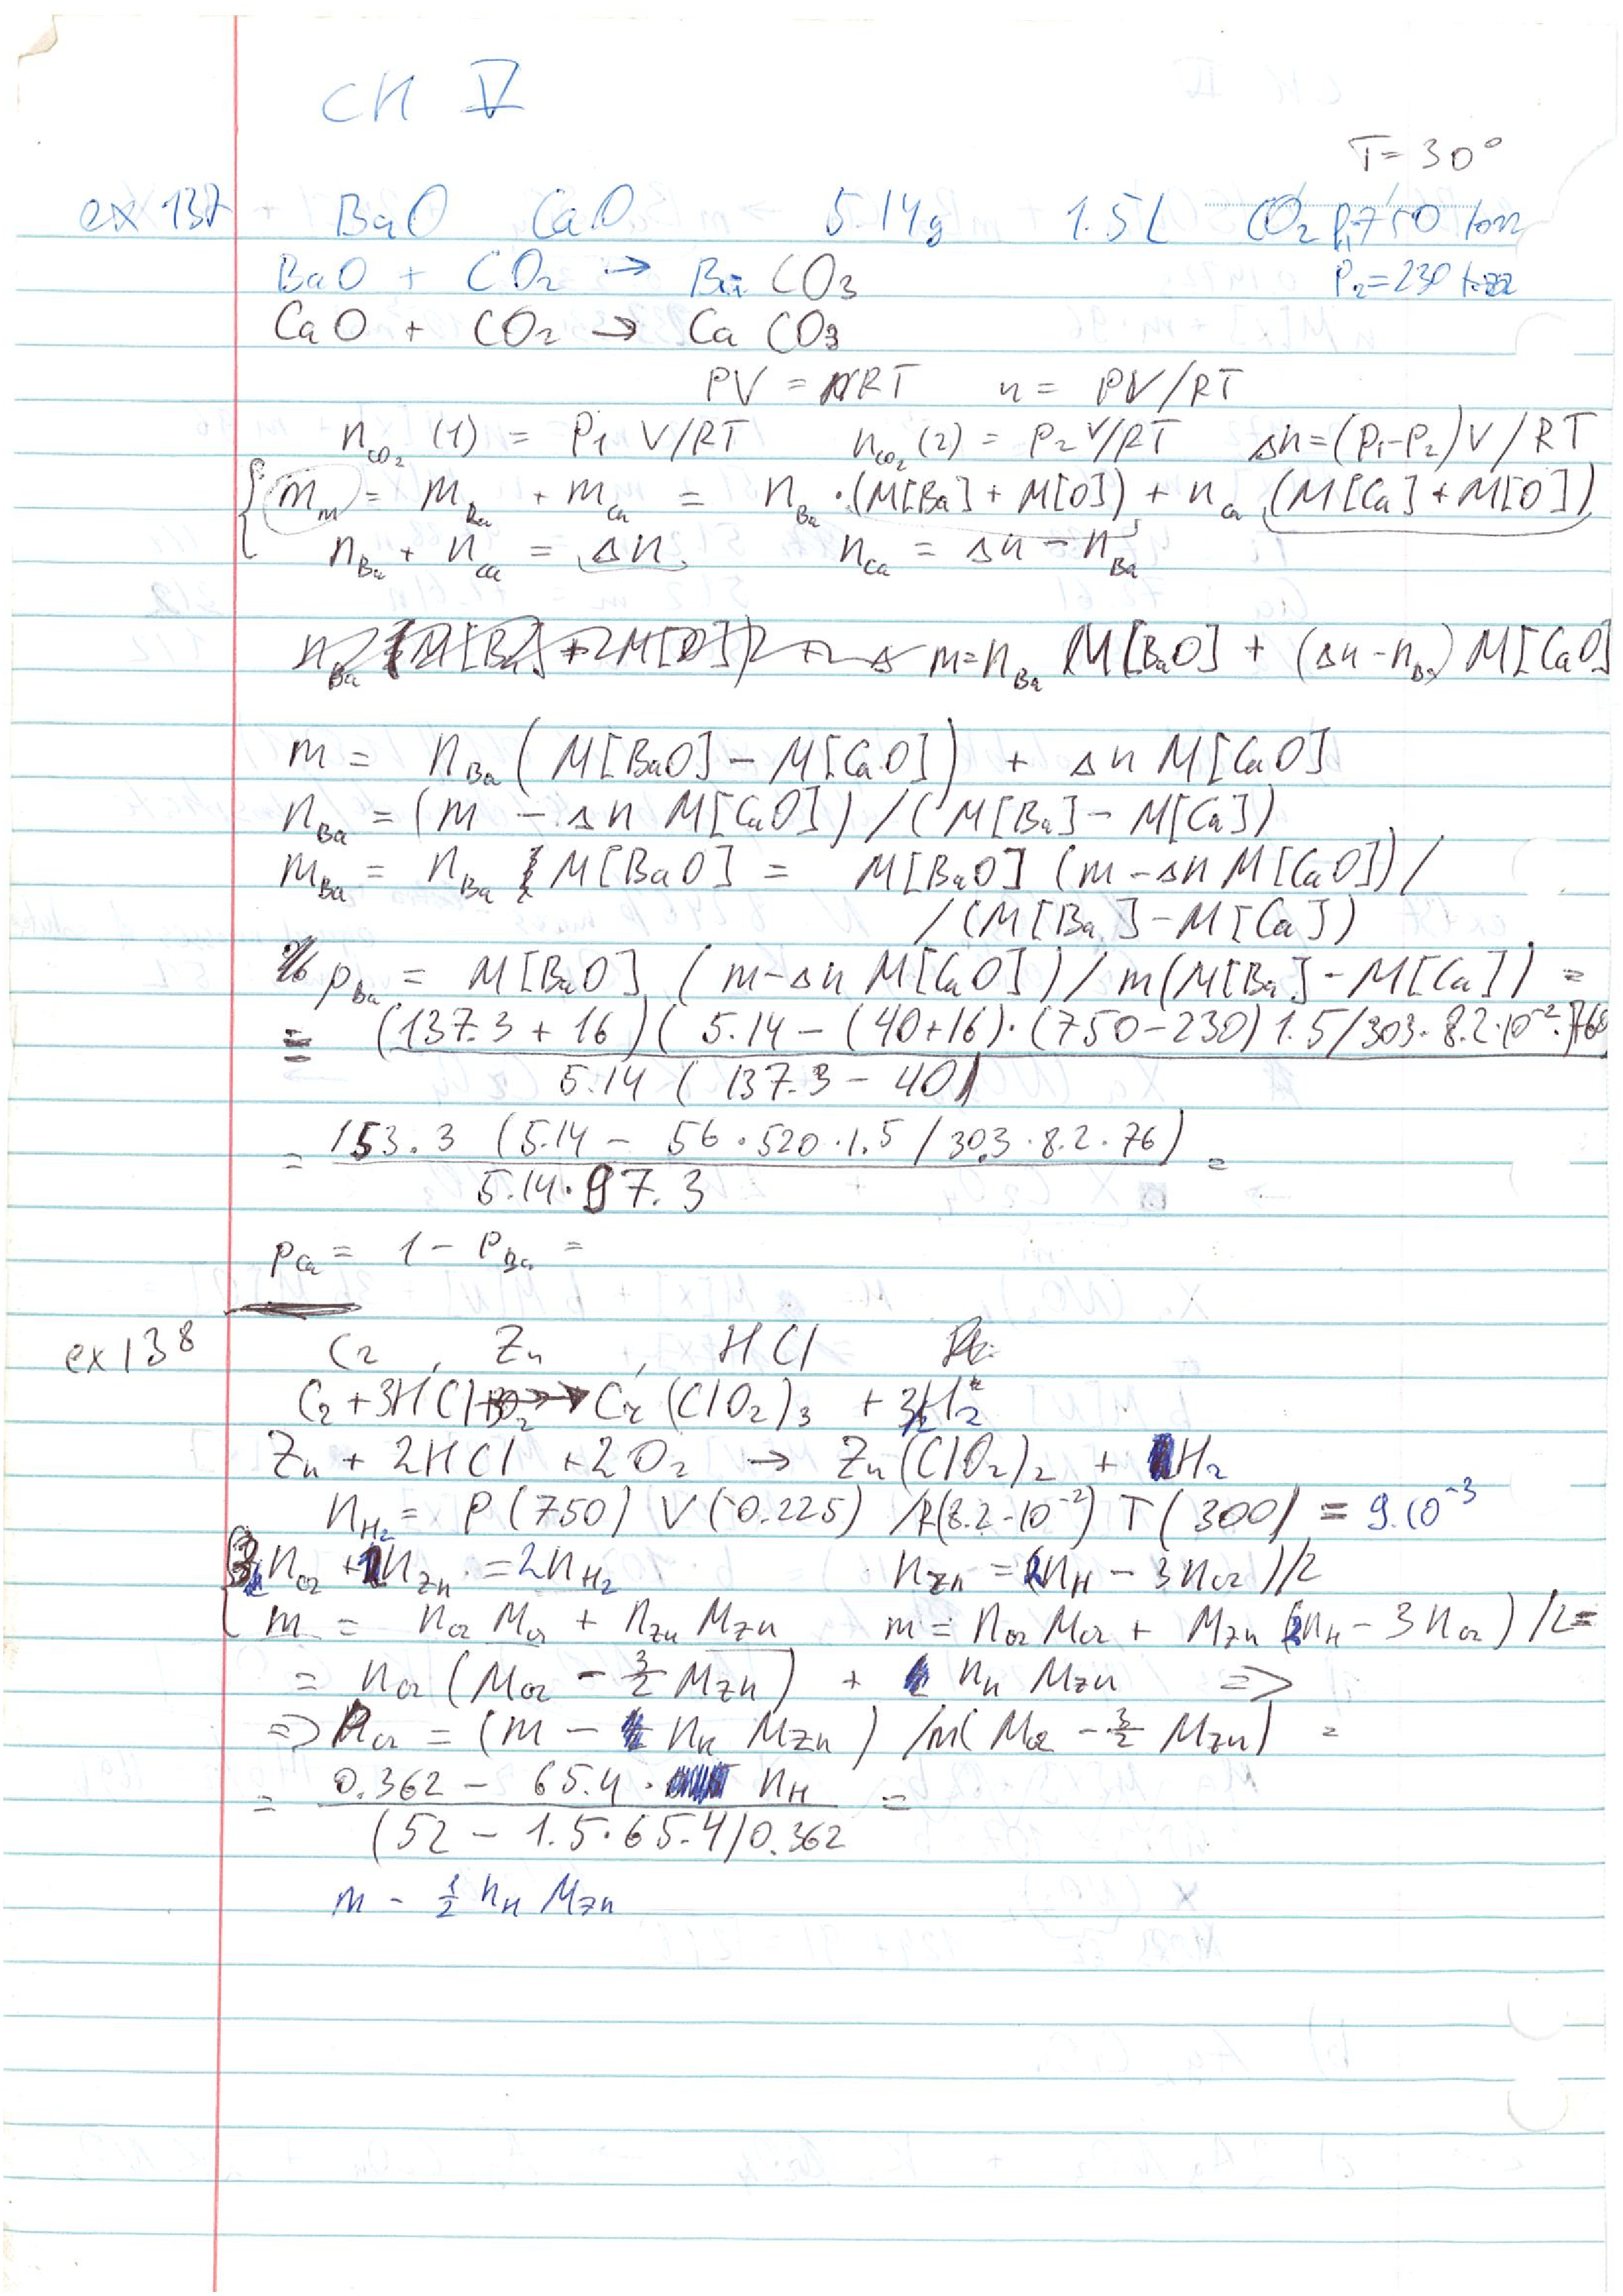 CH V
T = 30°
ex 137 BaO CaO 5.14g 1.5L CO2 P1 750 torr
BaO + CO2 → Ba CO3 P2 = 230 torr
CaO + CO2 → Ca CO3
PV = nRT n = PV/RT
nCO2 (1) = P1 V/RT nCO2 (2) = P2 V/RT Δn = (P1-P2)V/RT
{ mm = mBa + mCa = nBa · (M[Ba] + M[O]) + nCa (M[Ca] + M[O])
nBa + nCa = Δn nCa = Δn - nBa
m = nBa M[BaO] + (Δn - nBa) M[CaO]
m = nBa (M[BaO] - M[CaO]) + Δn M[CaO]
nBa = (m - Δn M[CaO]) / (M[Ba] - M[Ca])
mBa = nBa M[BaO] = M[BaO] (m - Δn M[CaO]) /
/ (M[Ba] - M[Ca])
pBa = M[BaO] (m - Δn M[CaO]) / m(M[Ba] - M[Ca]) =
= (137.3 + 16) (5.14 - (40+16) · (750-230) 1.5/303 · 8.2 · 10^-2 · 760
5.14 (137.3 - 40)
= 153.3 (5.14 - 56 · 520 · 1.5 / 303 · 8.2 · 76) =
5.14 · 97.3
pCa = 1 - pBa =
ex 138 Cr , Zn , HCl
Cr + 3HCl → Cr (ClO2)3 + 3/2 H2
Zn + 2HCl + 2O2 → Zn (ClO2)2 + H2
nH2 = P (750) V (0.225) / R(8.2 · 10^-2) T (300) = 9 · 10^-3
{ 3 nCr + 2 nZn = 2 nH2 nZn = (2nH - 3nCr)/2
m = nCr MCr + nZn MZn m = nCr MCr + MZn (2nH - 3nCr) /2 =
= nCr (MCr - 3/2 MZn) + nH MZn =>
=> pCr = (m - nH MZn) / m(MCr - 3/2 MZn) =
= 0.362 - 65.4 · nH =
(52 - 1.5 · 65.4) 0.362
m - 1/2 nH MZn